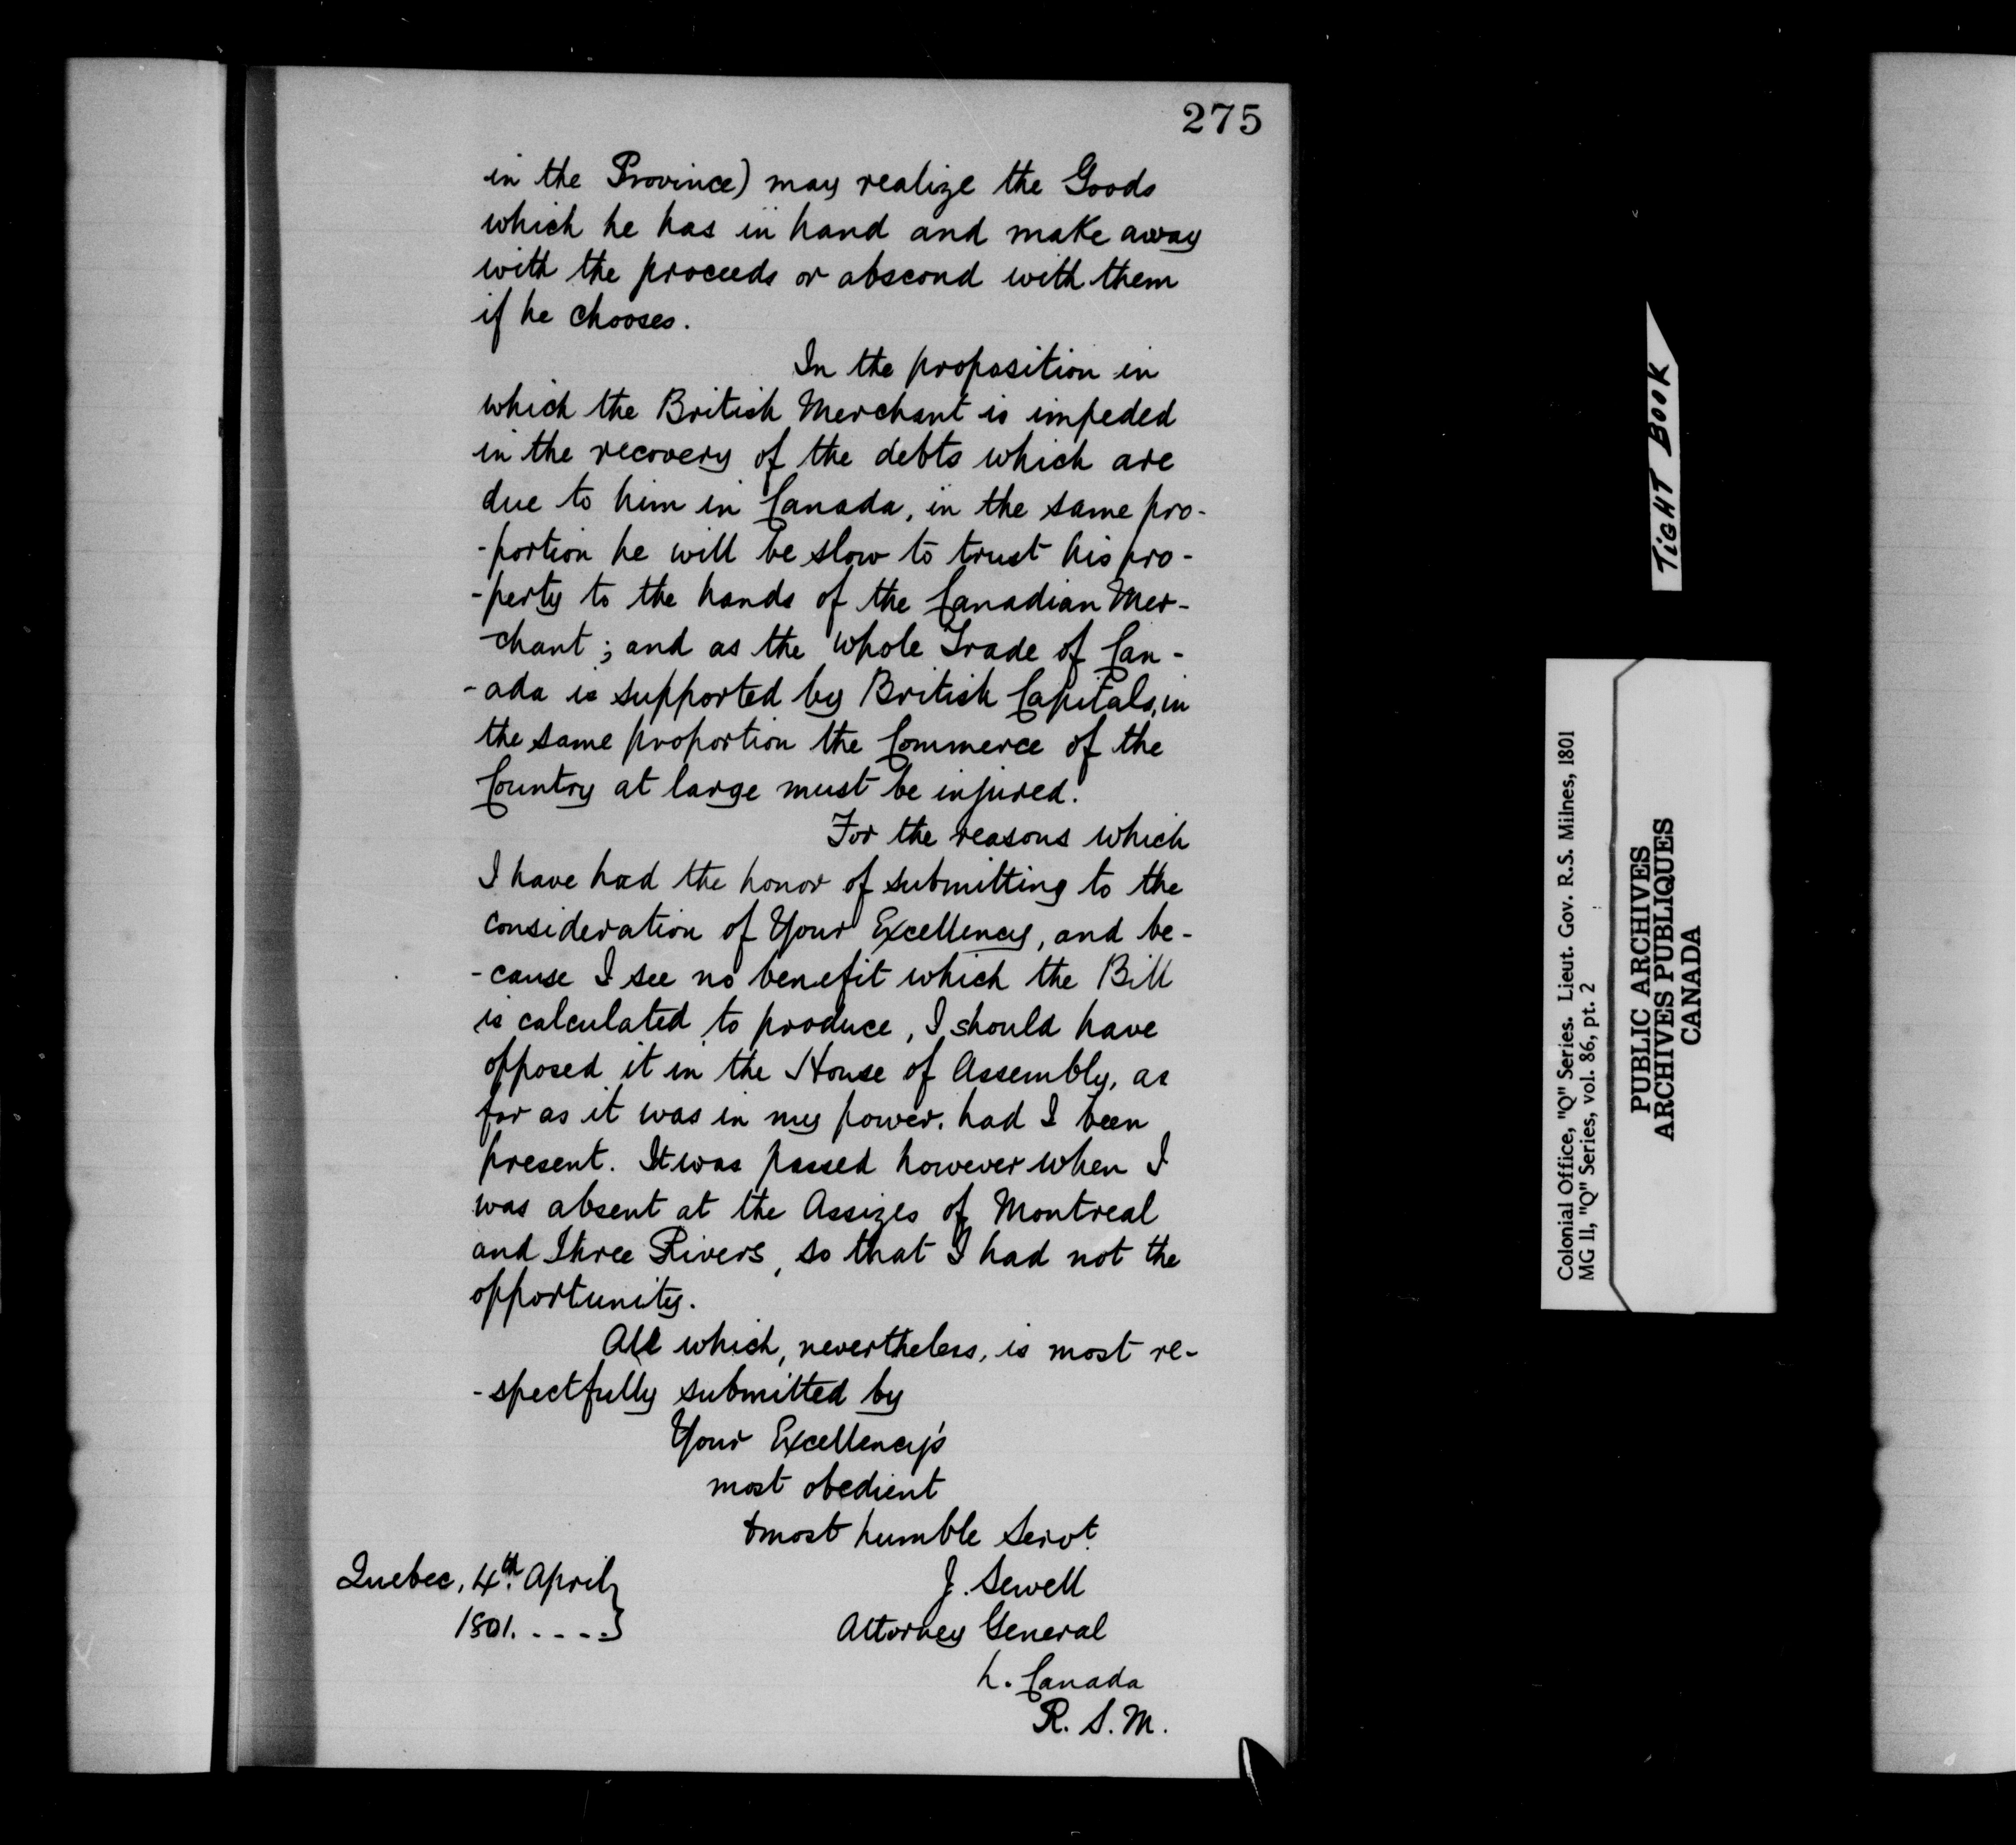 275
in the Province) may realize the Goods
which he has in hand and make away
with the proceeds or abscond with them
if he chooses.
In the proposition in
which the British Merchant is impeded
in the recovery of the debts which are
due to him in Canada, in the same pro-
-portion he will be slow to trust his pro-
-perty to the hands of the Canadian Mer-
-chant; and as the whole Trade of Can-
-ada is supported by British Capitals, in
the same proportion the Commerce of the
Country at large must be injured.
For the reasons which
I have had the honor of submitting to the
consideration of Your Excellency, and be-
-cause I see no benefit which the Bill
is calculated to produce, I should have
opposed it in the House of Assembly, as
far as it was in my power, had I been
present. It was passed however when I
was absent at the Assizes of Montreal
and Three Rivers, so that I had not the
opportunity.
All which, nevertheless, is most re-
-spectfully submitted by
Your Excellency's
most obedient
& most humble Servt.
Quebec, 4th. April
1801. - - - -
J. Sewell
Attorney General
L. Canada
R. S. M.
TIGHT BOOK
Colonial Office, "Q" Series. Lieut. Gov. R.S. Milnes, 1801
MG 11, "Q" Series, vol. 86, pt. 2
PUBLIC ARCHIVES
ARCHIVES PUBLIQUES
CANADA